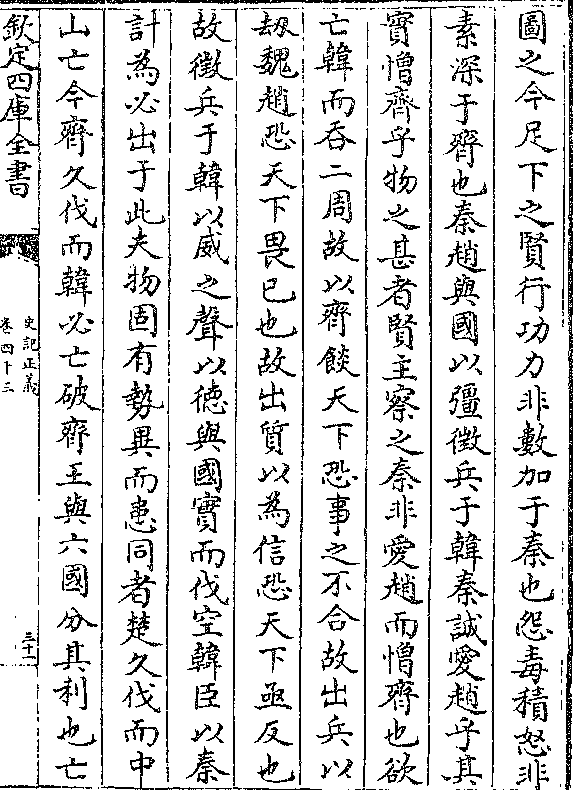 圖之今足下之賢行功力非數加于秦也怨毒積怒非
素深于齊也秦趙與國以彊徵兵于韓秦誠愛趙乎其
實憎齊乎物之甚者賢主察之秦非愛趙而憎齊也欲
亡韓而吞二周故以齊餤天下恐事之不合故出兵以
劫魏趙恐天下畏已也故出質以為信恐天下亟反也
故徵兵于韓以威之聲以德與國實而伐空韓臣以秦
計為必出于此夫物固有勢異而患同者楚久伐而中
山亡今齊久伐而韓必亡破齊王與六國分其利也亡
欽定四庫全書
史記正義
卷四十三
三十一